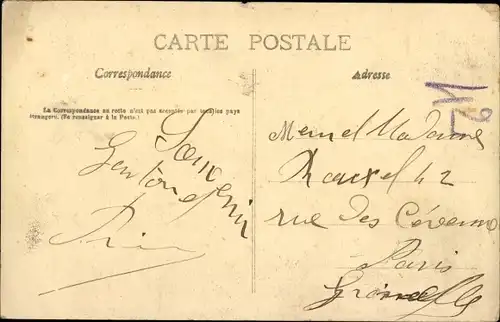 CARTE POSTALE
Correspondance
Adresse
La Correspondance au recto n'est pas acceptée par tous les pays
étrangers. (Se renseigner à la Poste.)
Souvenir
Gaston
Madame
42
rue des Cévennes
Paris
Grenelle